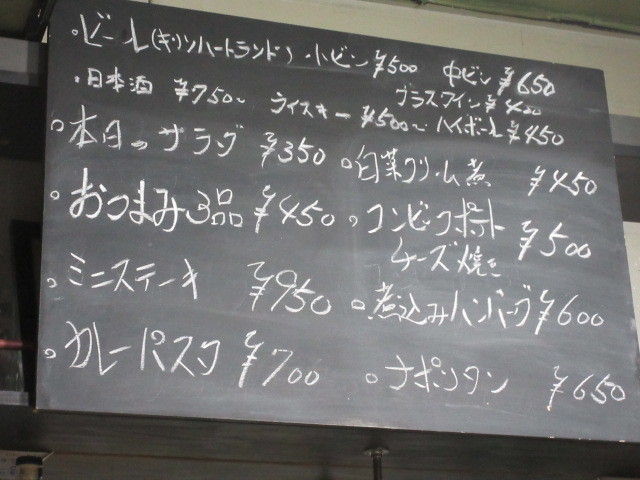 。ビール(キリンハートランド) 小ビン ¥500 中ビン ¥650
。日本酒 ¥750〜 グラスワイン ¥400
ウイスキー ¥500〜 ハイボール ¥450
。本日のサラダ ¥350
。白菜クリーム煮 ¥450
。おつまみ3品 ¥450
。コンビーフポテト
チーズ焼き ¥500
。ミニステーキ ¥950
。煮込みハンバーグ ¥600
。カレーパスタ ¥700
。ナポリタン ¥650